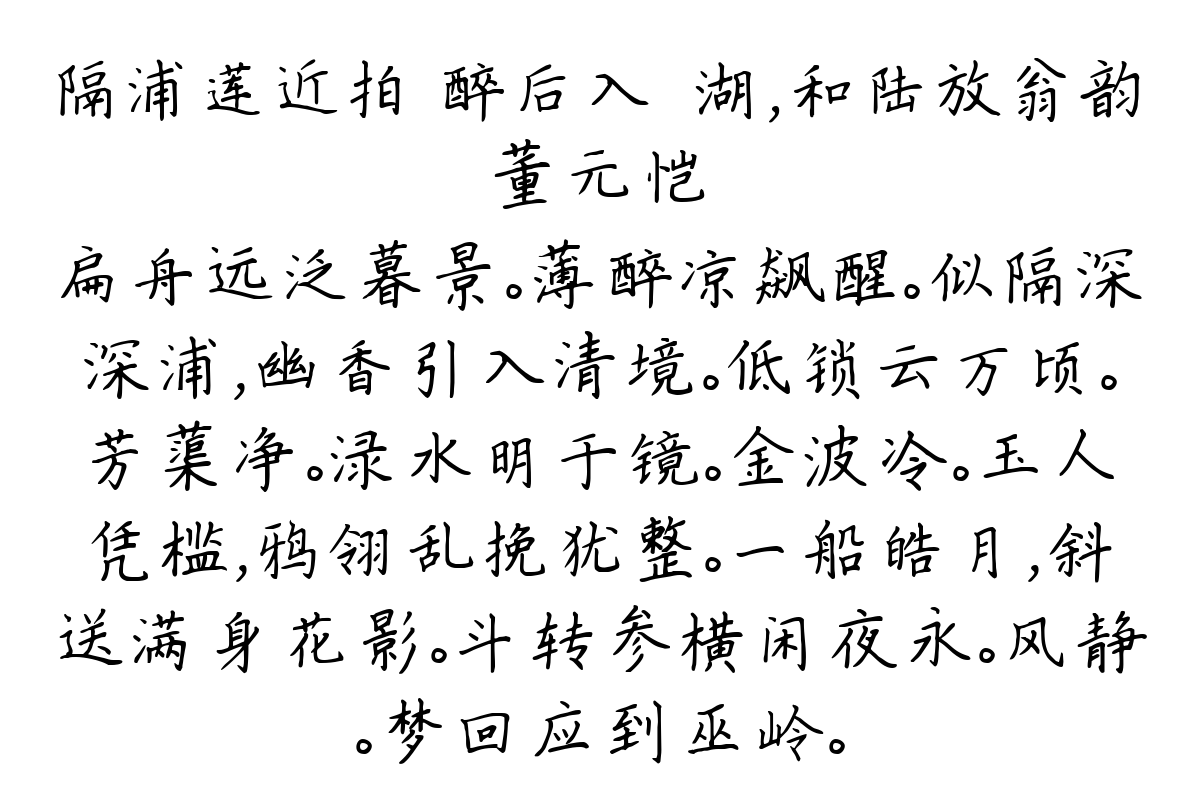 隔浦莲近拍 醉后入 湖,和陆放翁韵
董元恺
扁舟远泛暮景。薄醉凉飙醒。似隔深
深浦,幽香引入清境。低锁云万顷。
芳蕖净。渌水明于镜。金波冷。玉人
凭槛,鸦翎乱挽犹整。一船皓月,斜
送满身花影。斗转参横闲夜永。风静
。梦回应到巫岭。